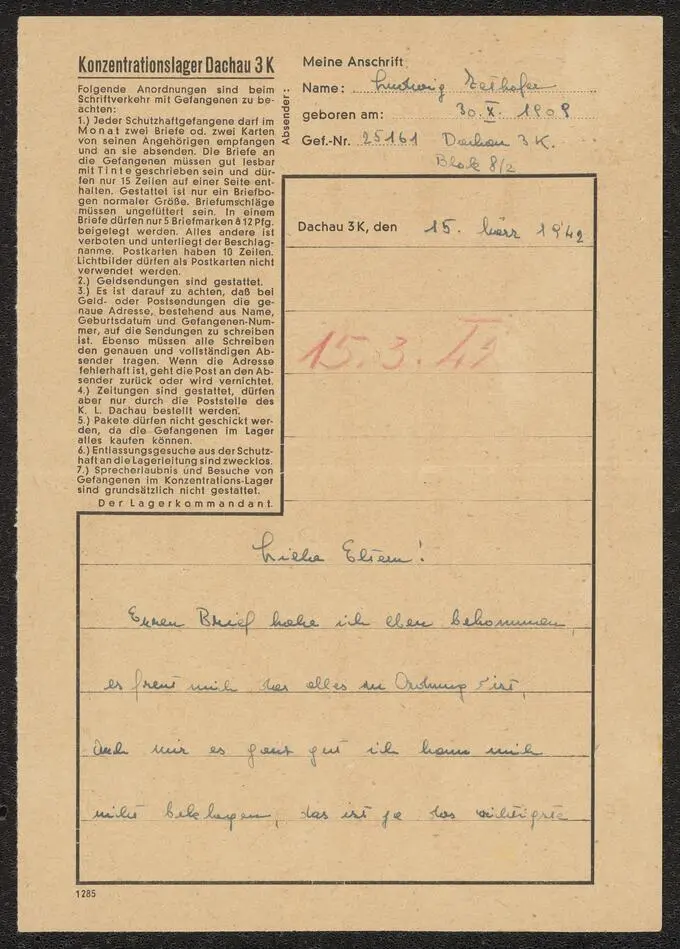 Konzentrationslager Dachau 3 K
Folgende Anordnungen sind beim
Schriftverkehr mit Gefangenen zu be-
achten:
1.) Jeder Schutzhaftgefangene darf im
Monat zwei Briefe od. zwei Karten
von seinen Angehörigen empfangen
und an sie absenden. Die Briefe an
die Gefangenen müssen gut lesbar
mit Tinte geschrieben sein und dür-
fen nur 15 Zeilen auf einer Seite ent-
halten. Gestattet ist nur ein Briefbo-
gen normaler Größe. Briefumschläge
müssen ungefüttert sein. In einem
Briefe dürfen nur 5 Briefmarken à 12 Pfg.
beigelegt werden. Alles andere ist
verboten und unterliegt der Beschlag-
nahme. Postkarten haben 10 Zeilen.
Lichtbilder dürfen als Postkarten nicht
verwendet werden.
2.) Geldsendungen sind gestattet.
3.) Es ist darauf zu achten, daß bei
Geld- oder Postsendungen die ge-
naue Adresse, bestehend aus Name,
Geburtsdatum und Gefangenen-Num-
mer, auf die Sendungen zu schreiben
ist. Ebenso müssen alle Schreiben
den genauen und vollständigen Ab-
sender tragen. Wenn die Adresse
fehlerhaft ist, geht die Post an den Ab-
sender zurück oder wird vernichtet.
4.) Zeitungen sind gestattet, dürfen
aber nur durch die Poststelle des
K. L. Dachau bestellt werden.
5.) Pakete dürfen nicht geschickt wer-
den, da die Gefangenen im Lager
alles kaufen können.
6.) Entlassungsgesuche aus der Schutz-
haft an die Lagerleitung sind zwecklos.
7.) Sprecherlaubnis und Besuche von
Gefangenen im Konzentrations-Lager
sind grundsätzlich nicht gestattet.
Der Lagerkommandant.
Absender:
Meine Anschrift
Name: Ludwig
geboren am: 30. X. 1909
Gef.-Nr. 25161 Dachau 3 K.
Blok 8/2
Dachau 3 K, den 15. März 1942
15.3.42
Liebe Eltern!
Euren Brief habe ich eben bekommen,
es freut mich das alles in Ordnung ist,
Auch mir es ganz gut ich kann mich
nicht beklagen, das ist ja das wichtigste
1285